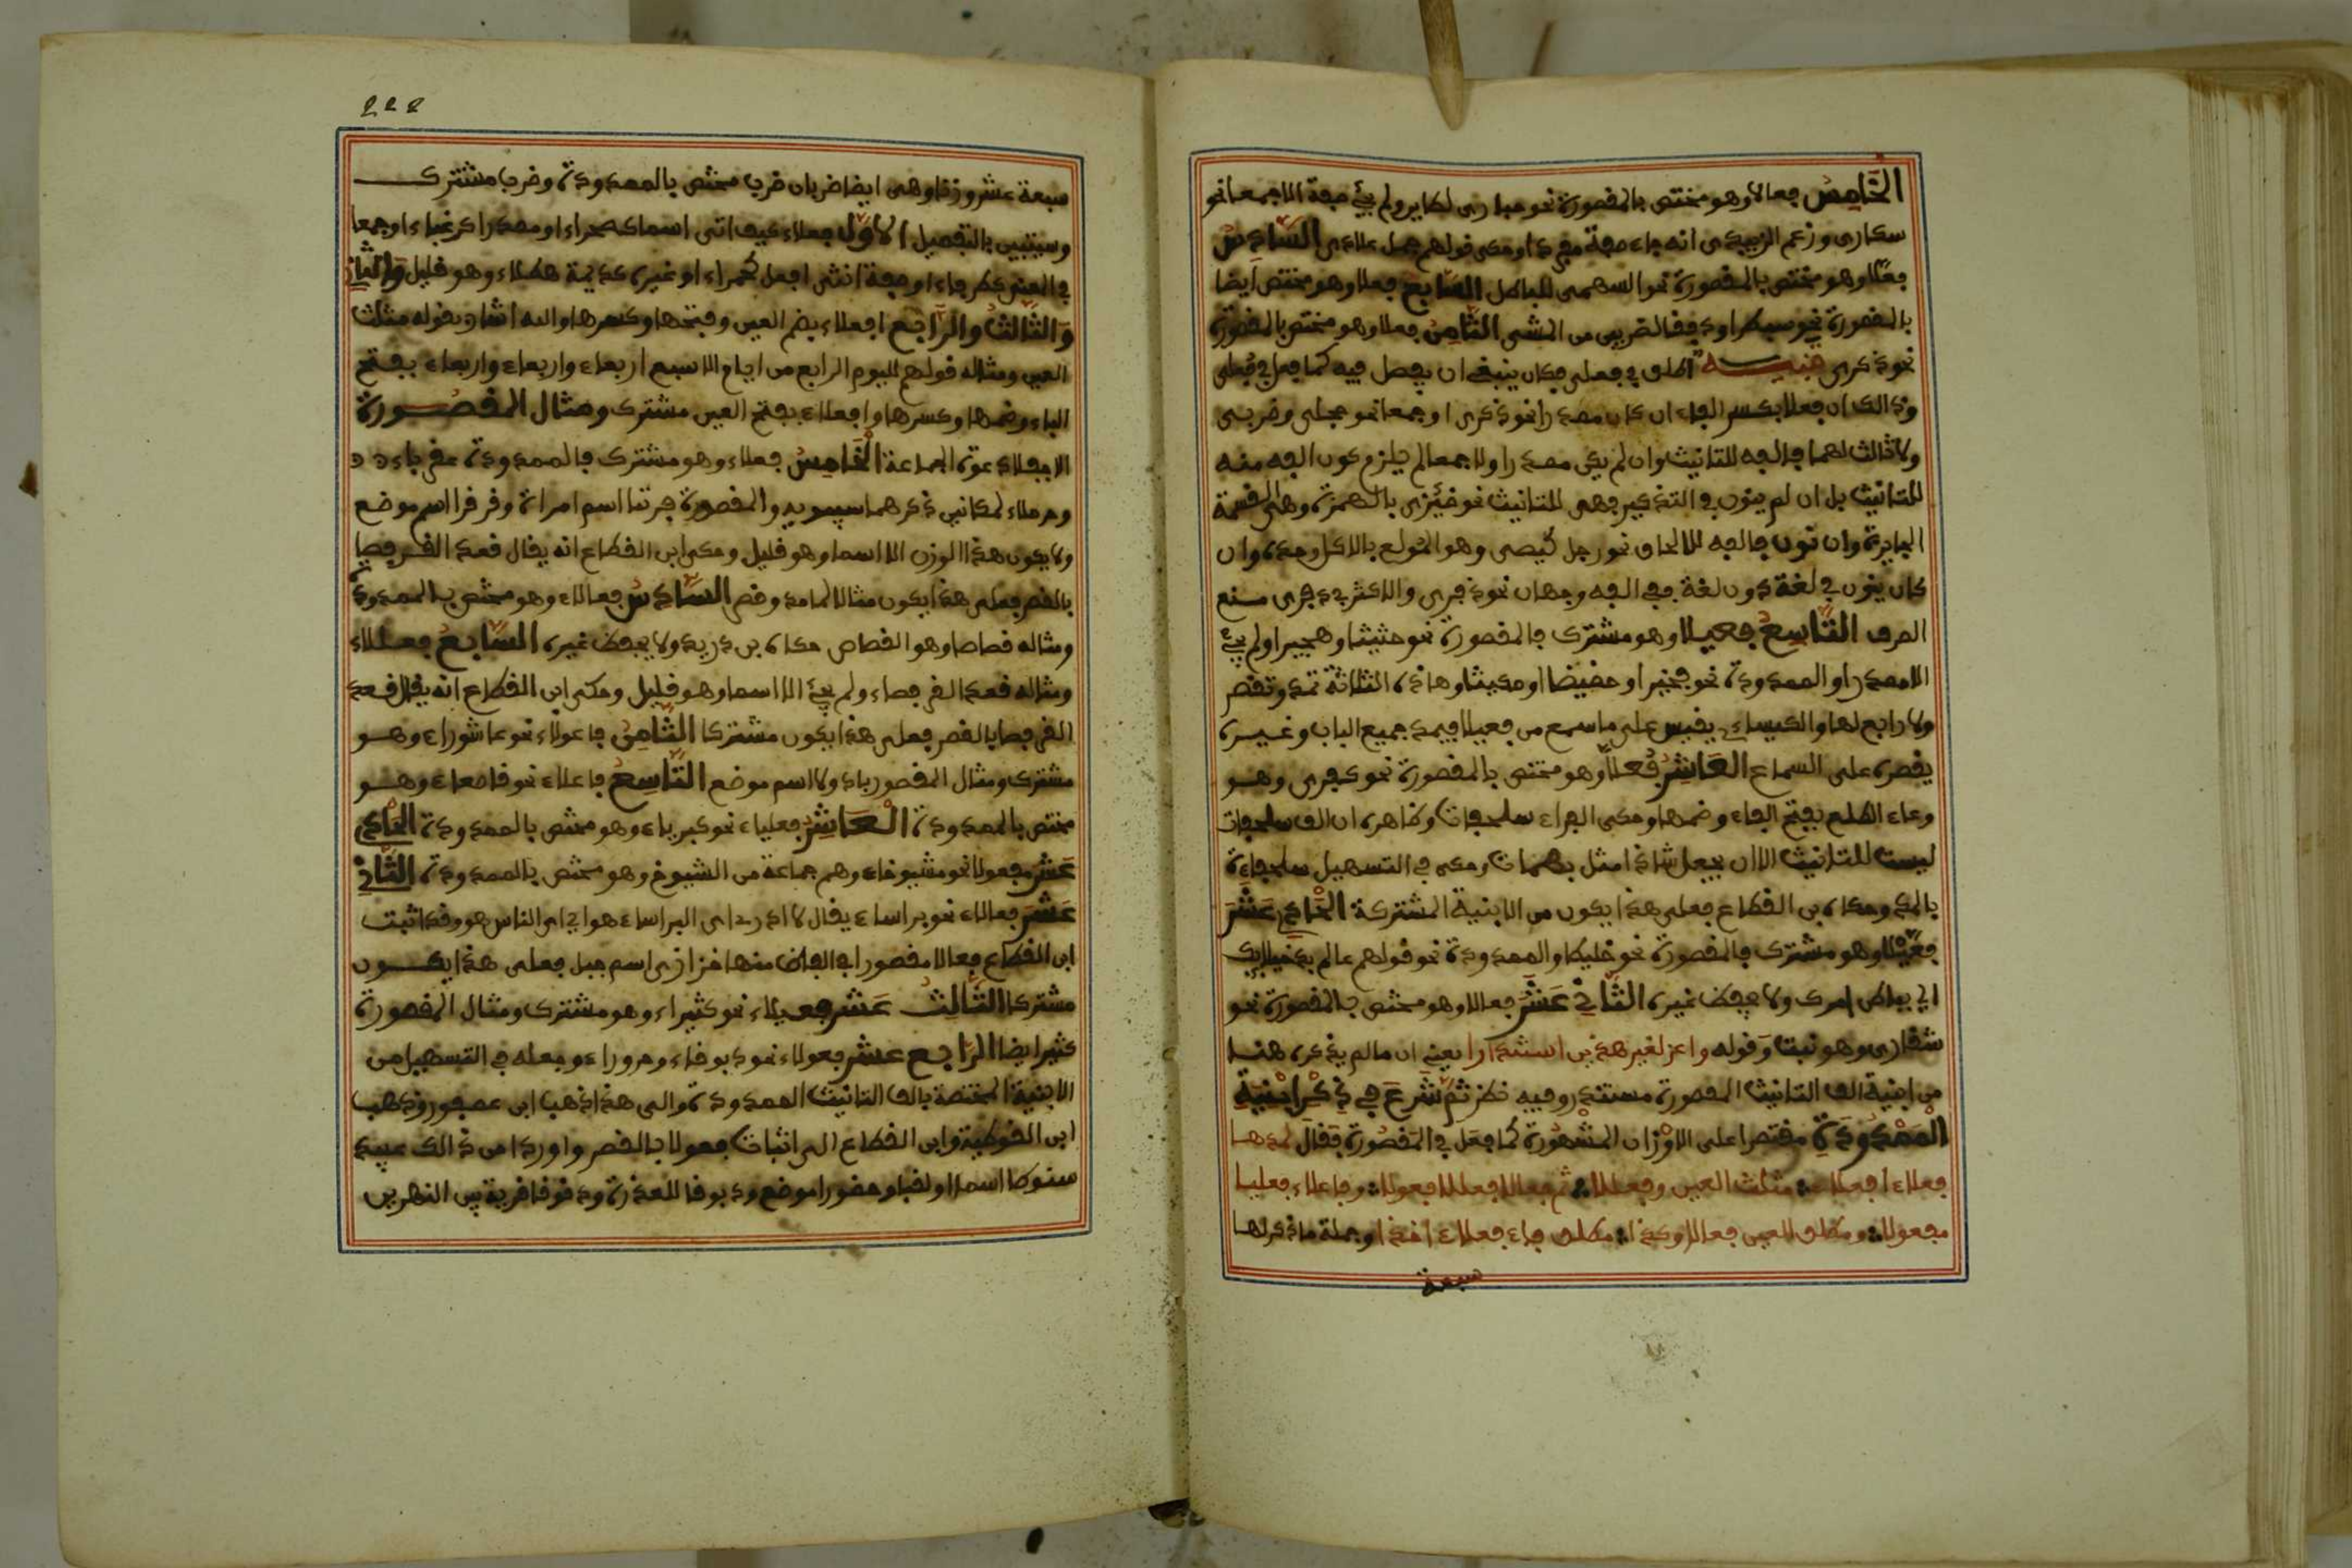 الخَامِسُ فعالا وهو مختص بالمقصورة نحو حبارى لطاير ولم يجئ صفة الا جمعا نحو
سكارى وزعم الزبيدى انه جاء صفة مفردا وحكى قولهم جمل علادى السَّادِسُ
فعلا وهو مختص بالمقصورة نحو السهمى للباطل السَّابِعُ فعلا وهو مختص ايضا
بالمقصورة نحو سبطرا ودفقا لضربين من المشى الثَّامِنُ فعلا وهو مختص بالمقصورة
نحو ذكرى تنبيه اطلق في فعلى فكان ينبغى ان يفصل فيه كما فعل في فعلى
وذالك ان فعلا بكسر الفاء ان كان مصدرا نحو ذكرى او جمعا نحو حجلى وظربى
ولا ثالث لهما فالفه للتانيث وان لم يكن مصدرا ولا جمعا لم يلزم كون الفه منه
للتانيث بل ان لم ينون في التنكير فهى للتانيث نحو ضئزى بالهمزة وهى القسمة
الجايرة وان نون فالفه للالحاق نحو رجل كيصى وهو المولع بالاكل وحده وان
كان ينون في لغة دون لغة ففى الفه وجهان نحو ذفرى والاكثر في ذفرى منع
الصرف التَّاسِعُ فعيلا وهو مشترك فالمقصورة نحو حثيثا وهجيرا ولم يجئ
الا مصدرا والممدودة نحو فخيرا وخصيصا ومكيثا وهاذه الثلاثة تمد وتقصر
ولا رابع لها والكساءى يقيس على ما سمع من فعيلا فيمد جميع الباب وغيره
يقصره على السماع العَاشِرُ فُعلا وهو مختص بالمقصورة نحو كفرى وهو
وعاء الطلع بفتح الفاء وضمها وحكى الفراء سلحفات وظاهره ان الف سلحفات
ليست للتانيث الا ان يجعل شاذا مثل بهمات وحكى في التسهيل سلحفاءة
بالمد وحكاه بن القطاع فعلى هذا يكون من الابنية المشتركة الحَادِى عَشَرَ
فعيلا وهو مشترك فالمقصورة نحو خليطا والممدودة نحو قولهم عالم بدخيلايك
اي بباطن امرك ولا يحفظ غيره الثَّانِي عَشَرَ فعالا وهو مختص بالمقصورة نحو
شقارى وهو نبت وقوله واعز لغير هذين استندارا يعني ان ما لم يذكره هنا
من ابنية الف التانيث المقصورة مستندر وفيه نظر ثم شرَعَ في ذِكْرِ ابنيةِ
المَمْدُودَةِ مقتصرا على الاوزان المشهورة كما فعل في المقصورة فقال لمدها
فعلاء افعلاء مثلث العين وفعللاء ثم فعالا فعللا فاعولا وفاعلاء فعليا
مفعولا ومطلق العين فعالا وكذا مطلق فاء فعلاء اخذا وجملة ما ذكر لها
سبعة
222
سبعة عشر وزنا وهى ايضا ضربان ضرب مختص بالممدودة وضرب مشترك
وسيتبين بالتفصيل الاوَّل فعلاء كيف اتى اسما كصحراء او مصدرا كرغباء او جمعا
في المعنى كطرفاء او صفة انثى افعل كحمراء او غيره كديمة هطلاء وهو قليل والثاني
وَالثَّالثُ والرَّابع افعلاء بضم العين وفتحها وكسرها واليه اشار بقوله مثلث
العين ومثاله قولهم لليوم الرابع من ايام الاسبع اربعاء واربعاء واربعاء بفتح
الباء وضمها وكسرها وافعلاء بفتح العين مشترك ومثال المقصورة
الاجفلاء عوة الجماعة الخَامِسُ فعللاء وهو مشترك فالممدودة عقرباء
وحرملاء لمكانين ذكرهما سيبويه والمقصورة فرتنا اسم امراة وقرقرا اسم موضع
ولا يكون هذا الوزن الا اسما وهو قليل وحكى ابن القطاع انه يقال قعد القرفصا
بالقصر فعلى هذا يكون مثالا لما مد وقصر السَّادِسُ فعالاء وهو مختص بالممدودة
ومثاله قصاصا وهو القصاص حكاه بن دريد ولا يحفظ غيره السَّابعُ فعللاء
ومثاله قعد القرفصاء ولم يجئ الا اسما وهو قليل وحكى ابن القطاع انه يقال قعد
القرفصا بالقصر فعلى هذا يكون مشتركا الثَّامِنُ فاعولاء نحو عاشوراء وهو
مشترك ومثال المقصور بادولا اسم موضع التَّاسِعُ فاعلاء نحو قاصعاء وهو
مختص بالممدودة العَاشِرُ فعلياء نحو كبرياء وهو مختص بالممدودة الحَادِي
عَشَرَ مفعولا نحو مشيوخاء وهم جماعة من الشيوخ وهو مختص بالممدودة الثَّانِي
عَشَرَ فعالاء نحو براساء يقال لا ادرى اى البراساء هو اي اى الناس هو وقد اثبت
ابن القطاع فعالا مقصورا في الفاظ منها خزازى اسم جبل فعلى هذا يكون
مشتركا الثَّالِثَ عَشَرَ فعيلاء نحو كثيراء وهو مشترك ومثال المقصورة
كثيرا ايضا الرَّابع عشر فعولاء نحو دبوقاء وحروراء وجعله في التسهيل من
الابنية المختصة بالف التانيث الممدودة والى هذا ذهب ابن عصفور وذهب
ابن القوطية وابن القطاع الى اثبات فعولا بالقصر واورد من ذالك عبيد
سنوطا اسما او لقبا وحضورا موضع ودبوقا للعذرة ودقوقا قرية بين النهرين